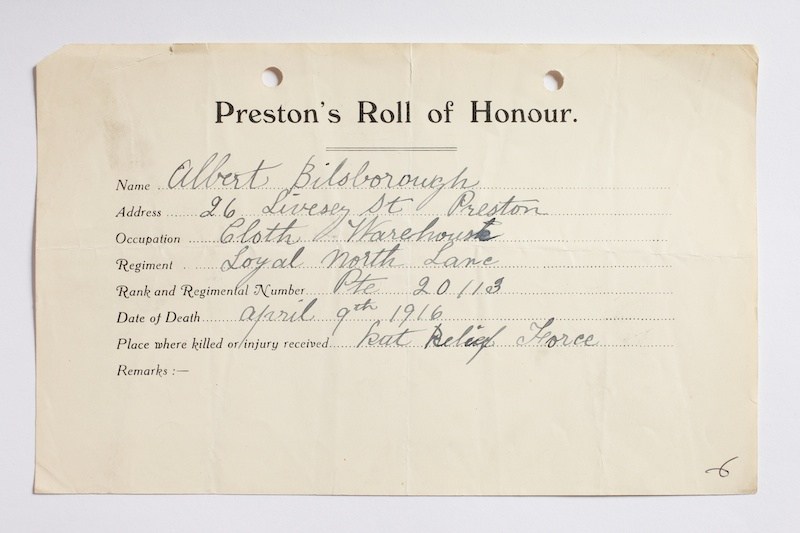 Preston's Roll of Honour.
Name Albert Bilsborough
Address 26 Livesey St Preston
Occupation Cloth Warehouse
Regiment Loyal North Lanc
Rank and Regimental Number Pte 20113
Date of Death April 9th 1916
Place where killed or injury received Kut Relief Force
Remarks :—
6